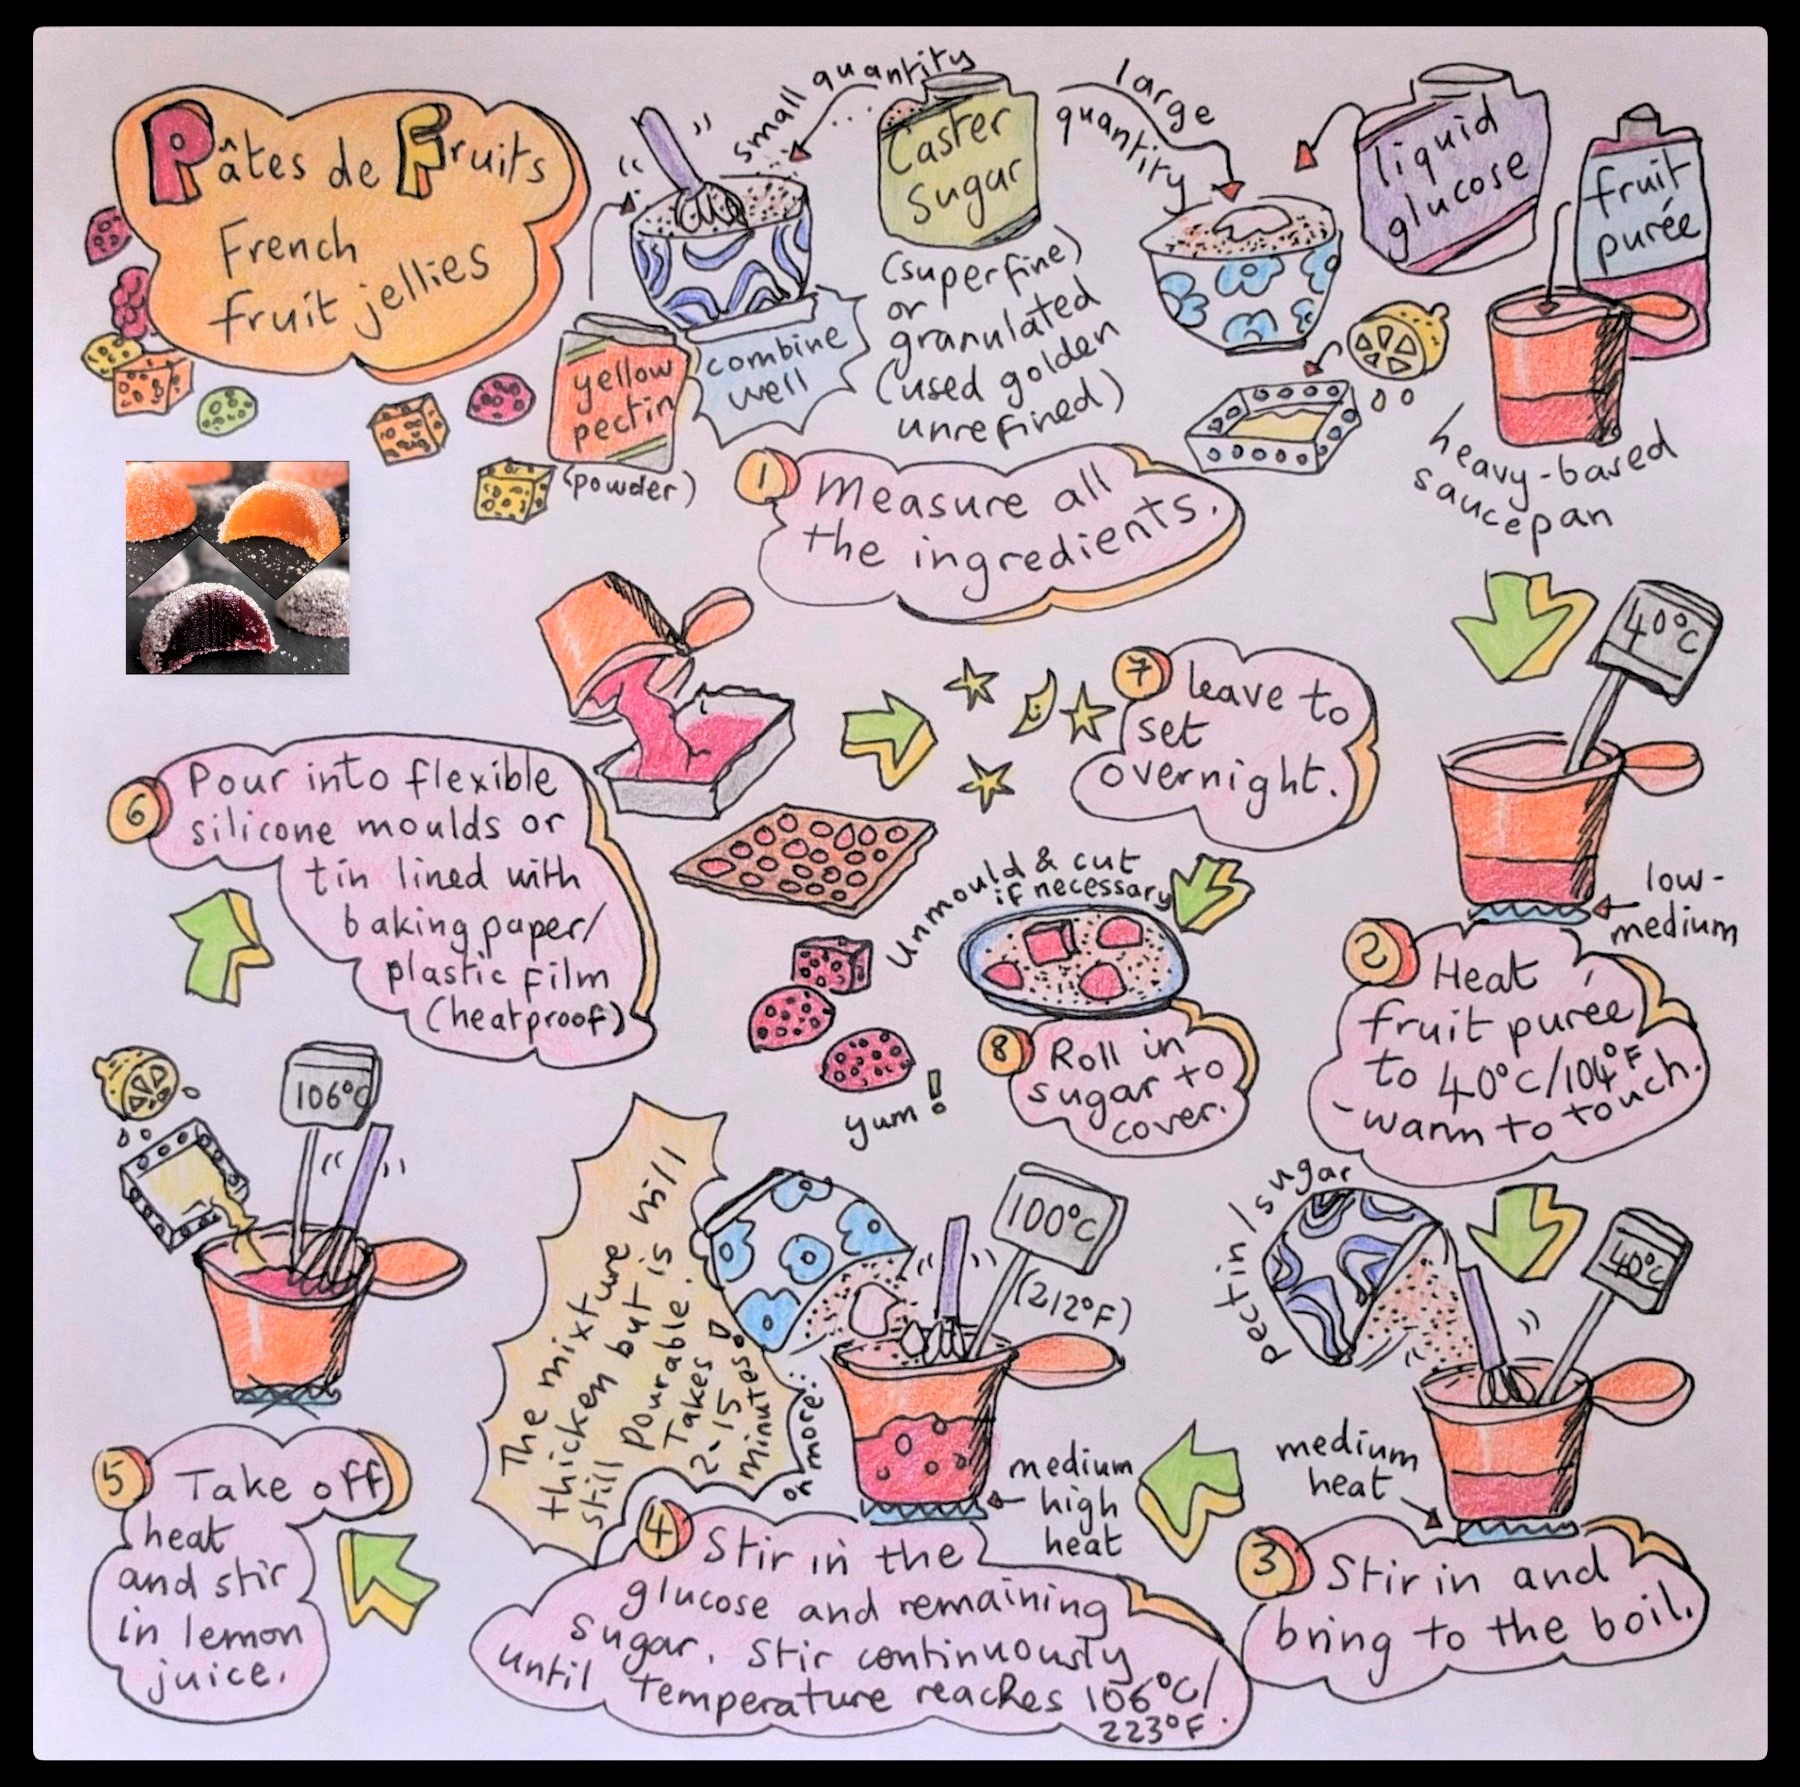 Pâtes de Fruits
French
fruit jellies
small quantity
Caster
Sugar
large
quantity
liquid
glucose
fruit
purée
(superfine)
or
granulated
(used golden
unrefined)
combine
well
yellow
pectin
(powder)
heavy-based
saucepan
1 Measure all
the ingredients.
40°C
low-
medium
2 Heat
fruit purée
to 40°C/104°F
- warm to touch.
pectin/sugar
40°C
medium
heat
3 Stir in and
bring to the boil.
100°C
(212°F)
medium
high
heat
The mixture will
thicken but is
still pourable.
Takes
2-15
minutes!
or more!
4 Stir in the
glucose and remaining
sugar. Stir continuously
until temperature reaches 106°C/
223°F.
106°C
5 Take off
heat
and stir
in lemon
juice.
6 Pour into flexible
silicone moulds or
tin lined with
baking paper/
plastic film
(heatproof)
7 leave to
set
overnight.
Unmould & cut
if necessary
8 Roll in
sugar to
cover.
yum!